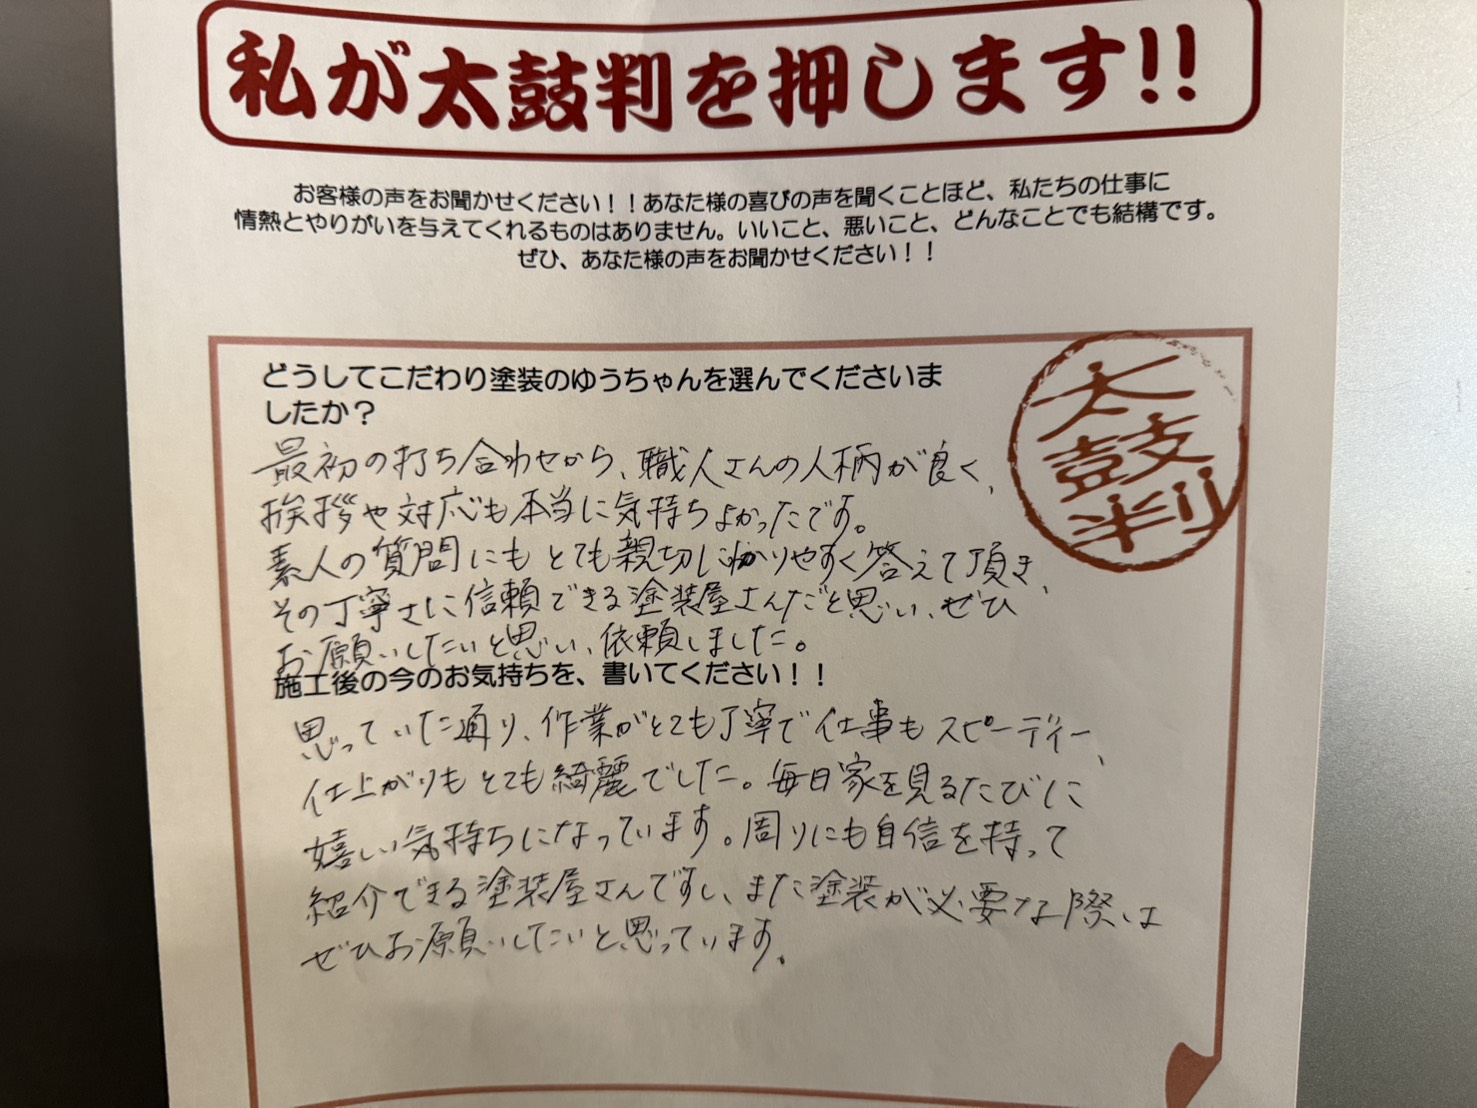 私が太鼓判を押します!!
お客様の声をお聞かせください！！あなた様の喜びの声を聞くことほど、私たちの仕事に
情熱とやりがいを与えてくれるものはありません。いいこと、悪いこと、どんなことでも結構です。
ぜひ、あなた様の声をお聞かせください！！
どうしてこだわり塗装のゆうちゃんを選んでくださいま
したか？
太鼓判
最初の打ち合わせから、職人さんの人柄が良く、
挨拶や対応も本当に気持ちよかったです。
素人の質問にもとても親切にわかりやすく答えて頂き、
その丁寧さに信頼できる塗装屋さんだと思い、ぜひ
お願いしたいと思い、依頼しました。
施工後の今のお気持ちを、書いてください！！
思っていた通り、作業がとても丁寧で仕事もスピーディー、
仕上がりもとても綺麗でした。毎日家を見るたびに
嬉しい気持ちになっています。周りにも自信を持って
紹介できる塗装屋さんですし、また塗装が必要な際は
ぜひお願いしたいと思っています。